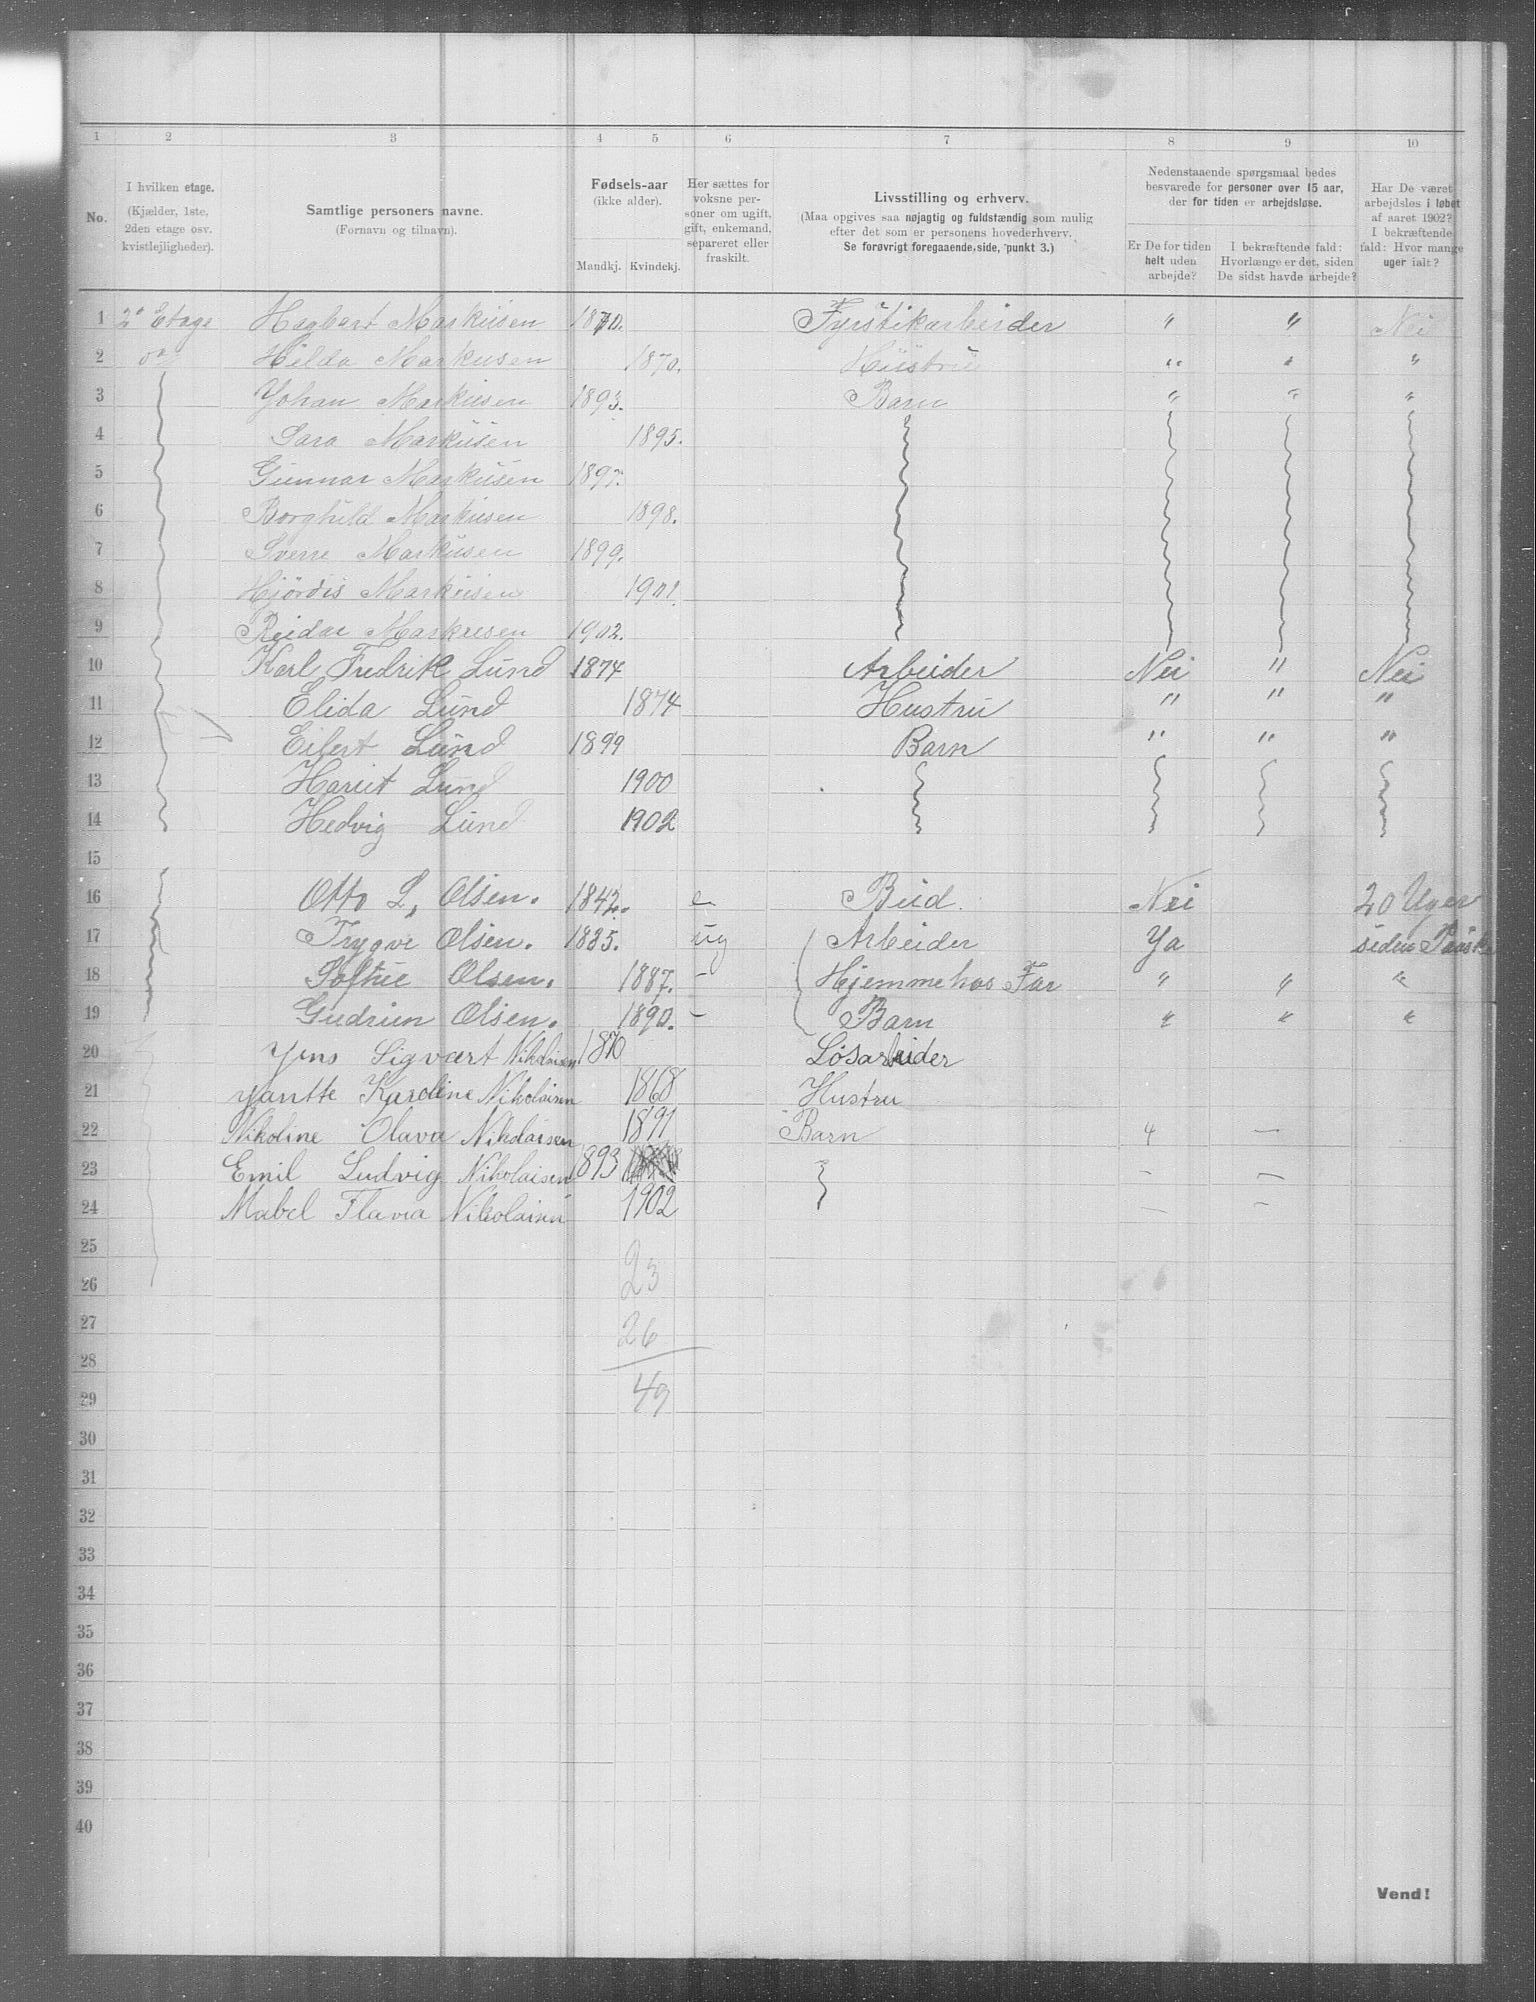 1 2 3 4 5 6 7 8 9 10
No.
I hvilken etage.
(Kjælder, 1ste,
2den etage osv.
kvistlejligheder).
Samtlige personers navne.
(Fornavn og tilnavn).
Fødsels-aar
(ikke alder).
Mandkj. Kvindekj.
Her sættes for
voksne per-
soner om ugift,
gift, enkemand,
separeret eller
fraskilt.
Livsstilling og erhverv.
(Maa opgives saa nøjagtig og fuldstændig som mulig
efter det som er personens hovederhverv.
Se forøvrigt foregaaende side, punkt 3.)
Nedenstaaende spørgsmaal bedes
besvarede for personer over 15 aar,
der for tiden er arbejdsløse.
Er De for tiden
helt uden
arbejde?
I bekræftende fald:
Hvorlænge er det, siden
De sidst havde arbejde?
Har De været
arbejdsløs i løbet
af aaret 1902?
I bekræftende
fald: Hvor mange
uger ialt?
1 2' Etage Hagbart Markusen 1870. Fyrstikarbeider " " Nei
2 do Hilda Markusen 1870. Hustru " " "
3 Johan Markusen 1893. Barn " " "
4 Sara Markusen 1895.
5 Gunnar Markusen 1897.
6 Borghild Markusen 1898.
7 Sverre Markusen 1899.
8 Hjördis Markusen 1901.
9 Reidar Markusen 1902.
10 Karl Fredrik Lund 1874 Arbeider Nei " Nei
11 Elida Lund 1874 Hustru " " "
12 Eilert Lund 1899 Barn " " "
13 Hariet Lund 1900
14 Hedvig Lund 1902
15
16 Otto L, Olsen. 1842. e Bud. Nei 20 Uger
17 Trygve Olsen. 1885. ug Arbeider Ja siden Paask
18 Sofhie Olsen. 1887. - Hjemme hos Far " " "
19 Gudrun Olsen. 1890. - Barn " " "
20 Jens Sigvart Nikolaisen 1870 Løsarbeider
21 Jantte Karoline Nikolaisen 1868 Hustru
22 Nikoline Olava Nikolaisen 1891 Barn 4 —
23 Emil Ludvig Nikolaisen 1893 - —
24 Mabel Flavia Nikolaisen 1902 — —
25 23
26
27 26
28
29 49
30
31
32
33
34
35
36
37
38
39
40
Vend!